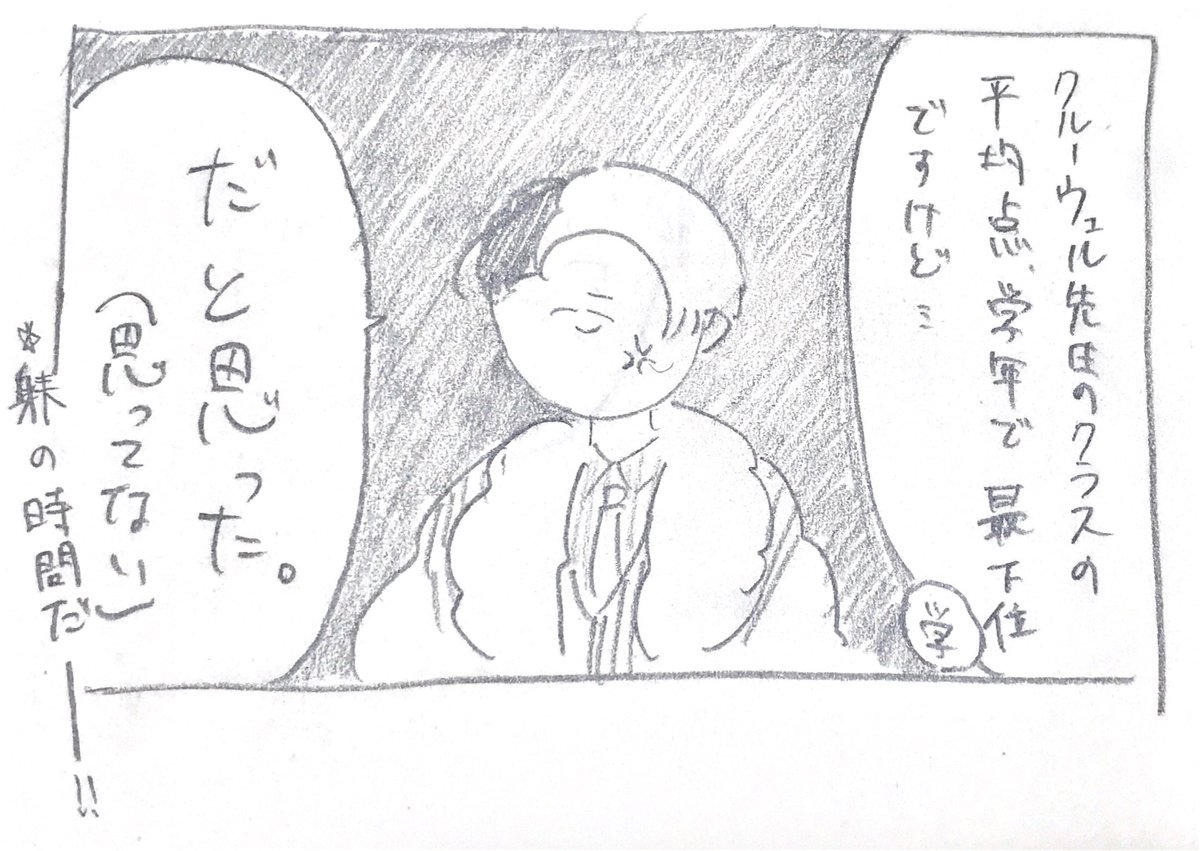 クルーウェル先生のクラスの
平均点、学年で最下位
ですけど…
学
だと思った。
(思ってない)
*躾の時間だ――!!